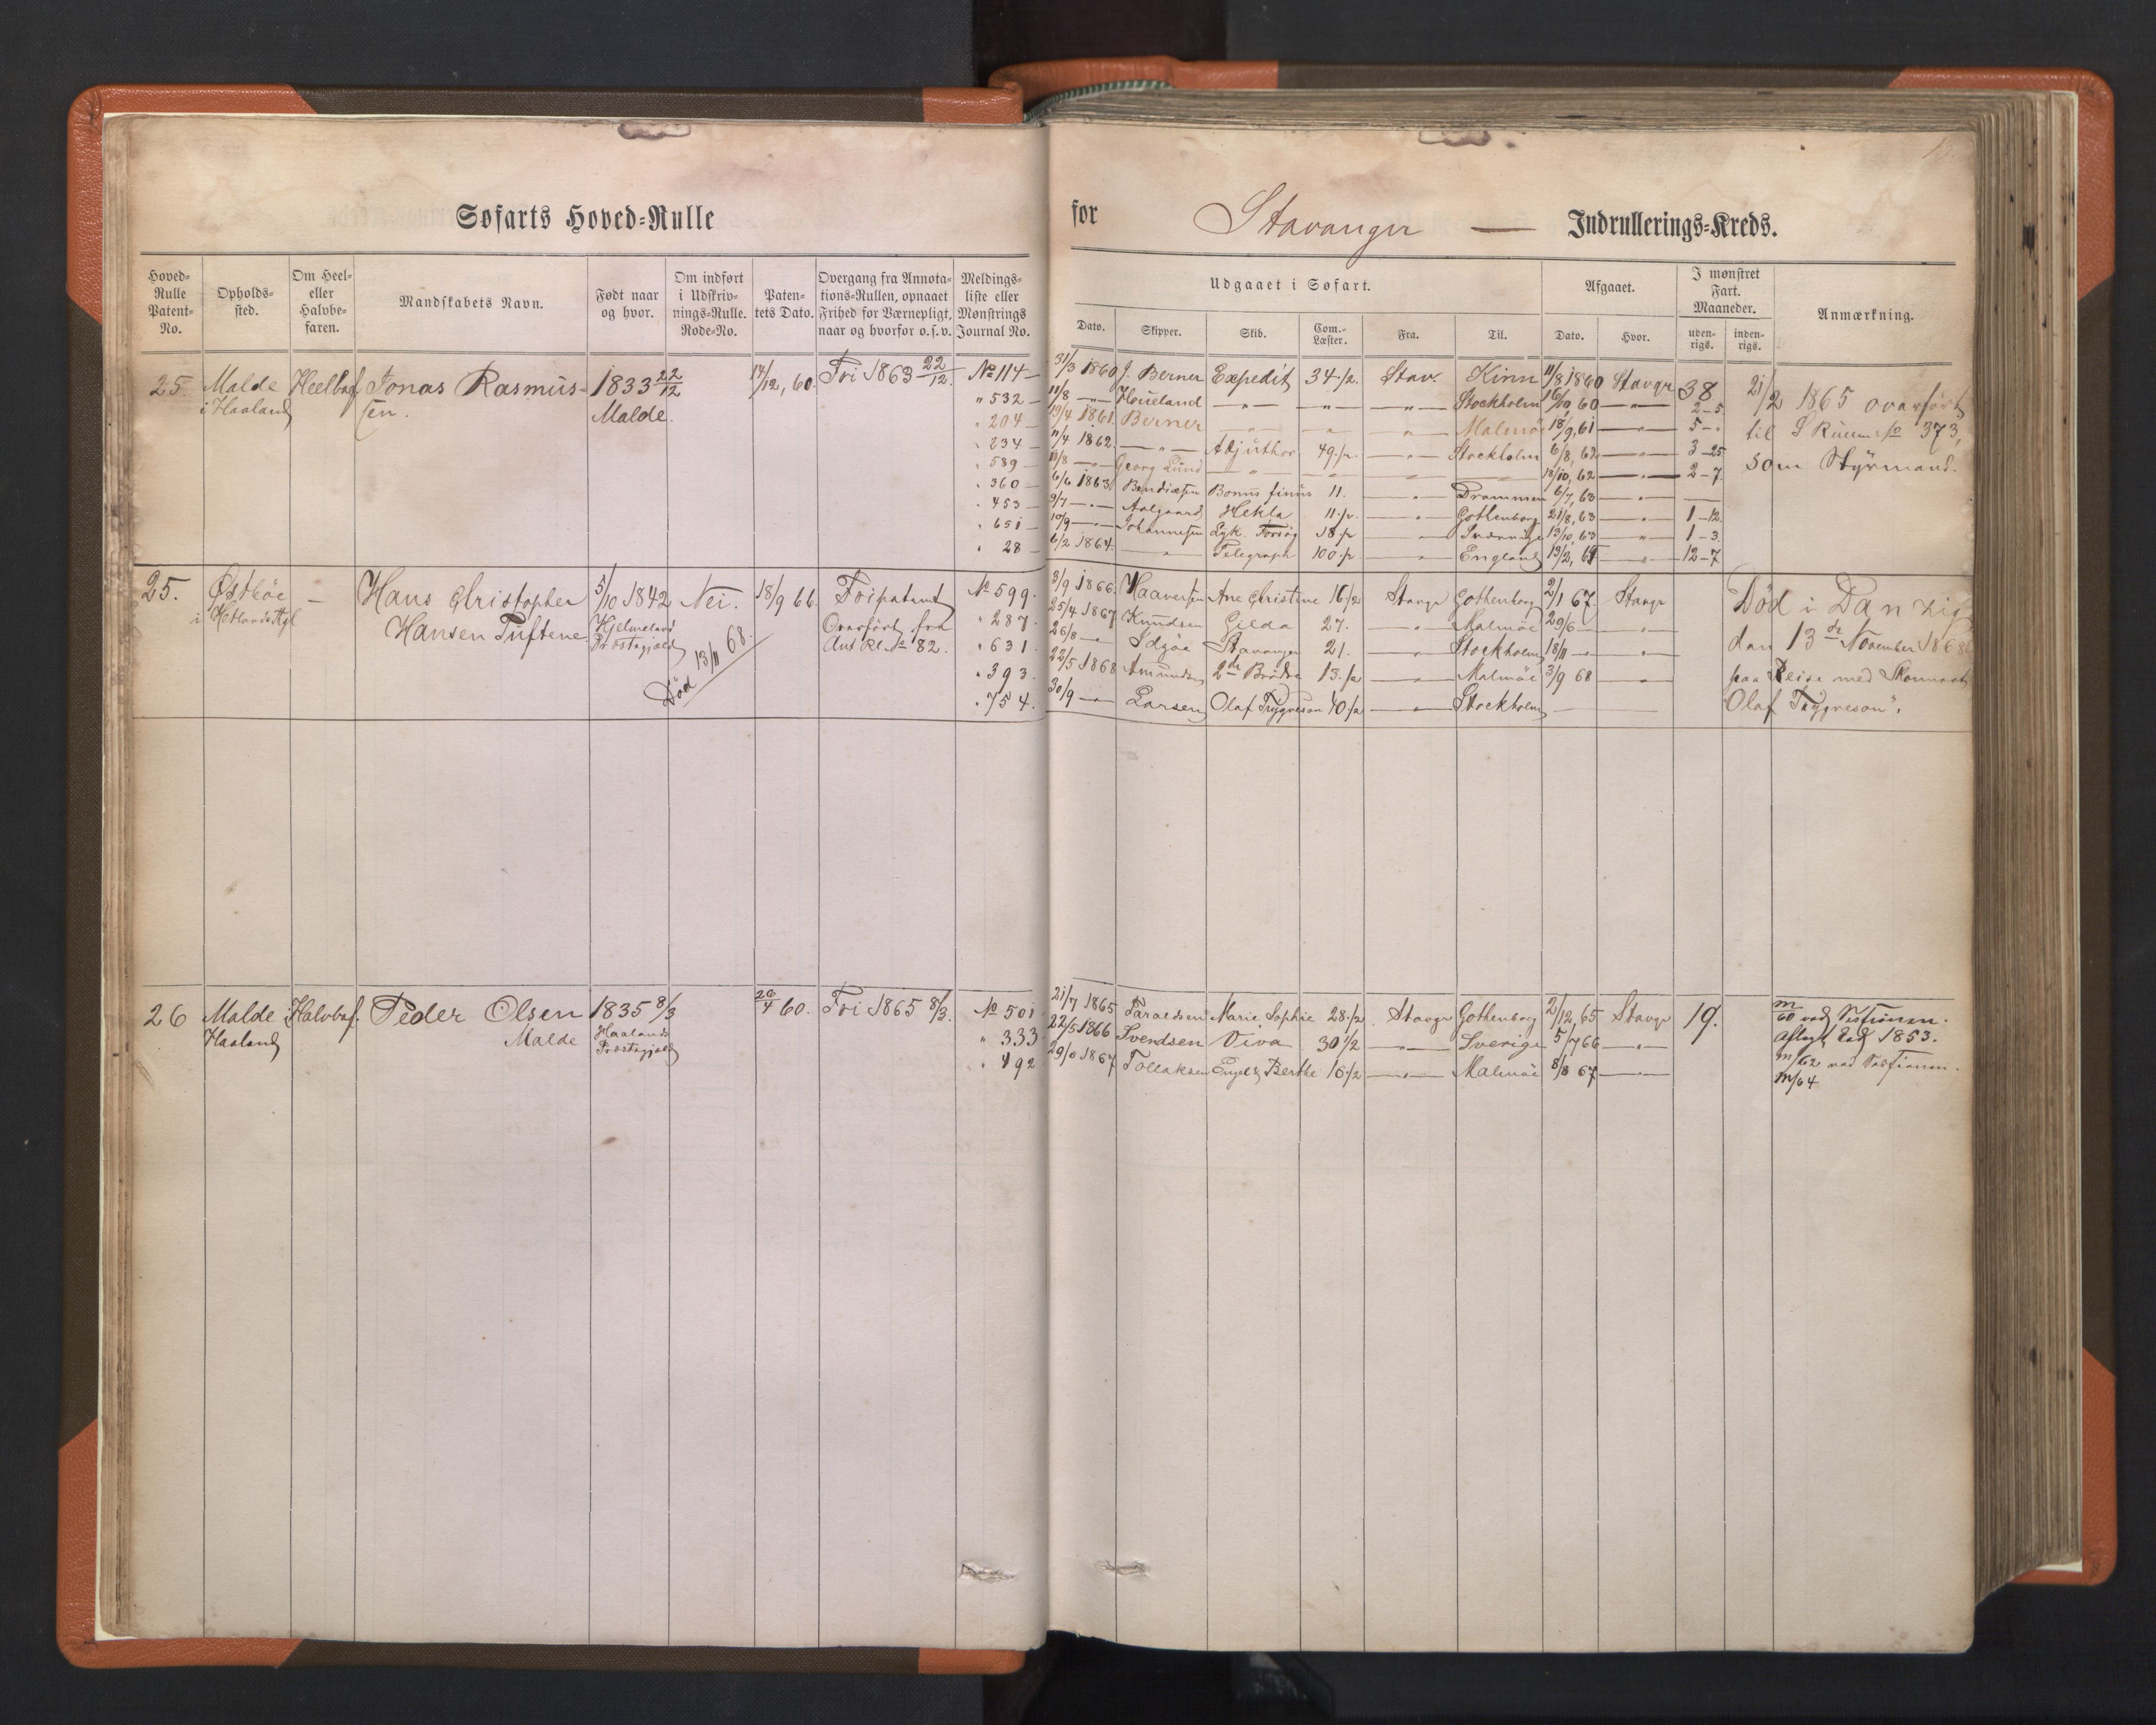 Søfarts Hoved-Rulle for Stavanger — Indrullerings-Kreds.
Hoved-Rulle Patent-No. Opholds-sted. Om Heel- eller Halvbe-faren. Mandskabets Navn. Født naar og hvor. Om indført i Udskriv-nings-Rulle. Rode-No. Paten-tets Dato. Overgang fra Annota-tions-Rullen, opnaaet Frihed for Værnepligt, naar og hvorfor o.s.v. Meldings-liste eller Mønstrings Journal No.
Udgaaet i Søfart. Afgaaet. I mønstret Fart. Maaneder. Anmærkning.
Dato. Skipper. Skib. Com.-Læster. Fra. Til. Dato. Hvor. uden-rigs. inden-rigs.
25. Malde Heelbef. Jonas Rasmus- 1833 22/12 14/12, 60. Fri 1863 22/12. No 114 — 31/3 1860 J. Berner Expedit 34 1/2. Stav. Kinn 11/8 1860 Stavgr 38 21/2 1865 overført
i Haaland sen. Malde. " 532 — 11/8 — " — Houeland — " — — " — — " — Stockholm 16/10 60 — " — 2-5. til S Rullen No 373,
" 204 — 13/4 1861. Berner — " — " " Malmöe 18/9, 61 — " — 5 - ". som Styrmand.
" 234 — 11/4 1862. — " — Adjuthor 49 1/2. — " — Stockholm 6/8, 62 — " — 3-25
" 589 — 11/8 — " — Georg Lund — " — — 18/10, 62 — " — 2-7
" 360 — 6/6 1863. Bendixsen Bonus finus 11. — " — Drammen 6/7, 63 — " — —
" 453 — 9/7 — " — Aalgaard Hekla 11 1/2. — " — Gothenborg 21/8, 63 — " — 1-12.
" 651 — 10/9 — " — Johannesen Lyk. Forsög 18 1/2 — " — 13/10, 63 — " — 1-3.
" 28 — 6/2 1864. — " — Telegraph 100 1/2 — " — England 13/2, 65 — " — 12-7
25. Østbøe — Hans Christopher 5/10 1842 Nei. 18/9 66. Fripatent No 599. 3/9 1866. Haaversen Ane Christine 16 1/2 Stavgr Gothenborg 2/1 67. Stavgr Død i Danzig
i Hetlands Hansen Tuftene Hjelmeland Overført fra " 287. 25/4 1867 Knudsen Gilda 27. — " — Malmöe 29/6 — — " — den 13de November 1868
Præstegjeld Død 13/11 68. Ant Rl No 82. " 631. 26/8 — " — Idsøe Stavanger 21. — " — Stockholm 18/11 — " — — " — paa Reise med Skonnert
" 393. 22/5 1868 Amundsen 2de Brödre 13 1/2 — " — Malmöe 3/9 68 — " — Olaf Trygveson".
" 754. 30/9 — " — Larsen Olaf Trygveson 40 1/2 — " — Stockholm — —
26 Malde i Halvbef. Peder Olsen 1835 8/3 26/4 60. Fri 1865 8/3. No 501 21/7 1865 Taraldsen Marie Sophie 28 1/2 Stavgr Gothenborg 2/12, 65 Stavgr 19. m/60 ved Sessionen.
Haaland Malde Haaland " 333 22/5 1866 Svendsen Viva 30 1/2 — " — Sverige 5/7 66 — " — Aflagt Ed 1853.
Præstegjeld " 492 1867 Tollaksen Engel Berthe 16 1/2 — " — Malmöe 8/8 67 — " — m/62 ved Sessionen.
m/64